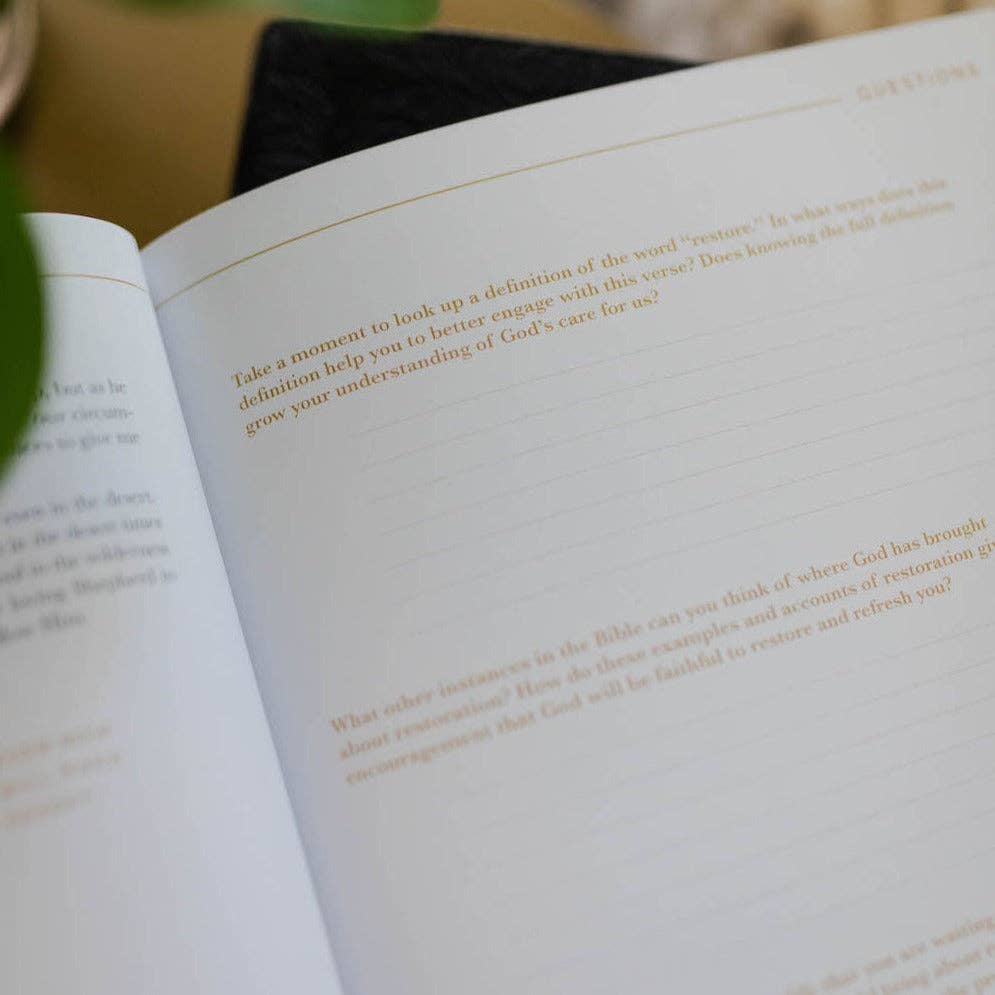 but as he
circum-
to give me
in the desert,
in the desert times
in the wilderness
loving Shepherd to
QUESTIONS
Take a moment to look up a definition of the word “restore.” In what ways does this
definition help you to better engage with this verse? Does knowing the full definition
grow your understanding of God’s care for us?
What other instances in the Bible can you think of where God has brought
about restoration? How do these examples and accounts of restoration gi
encouragement that God will be faithful to restore and refresh you?
that you are waiting
bring about